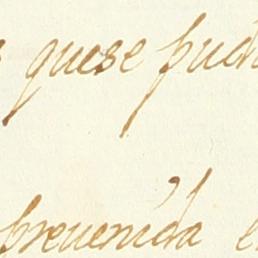 quese pud
preuenida e